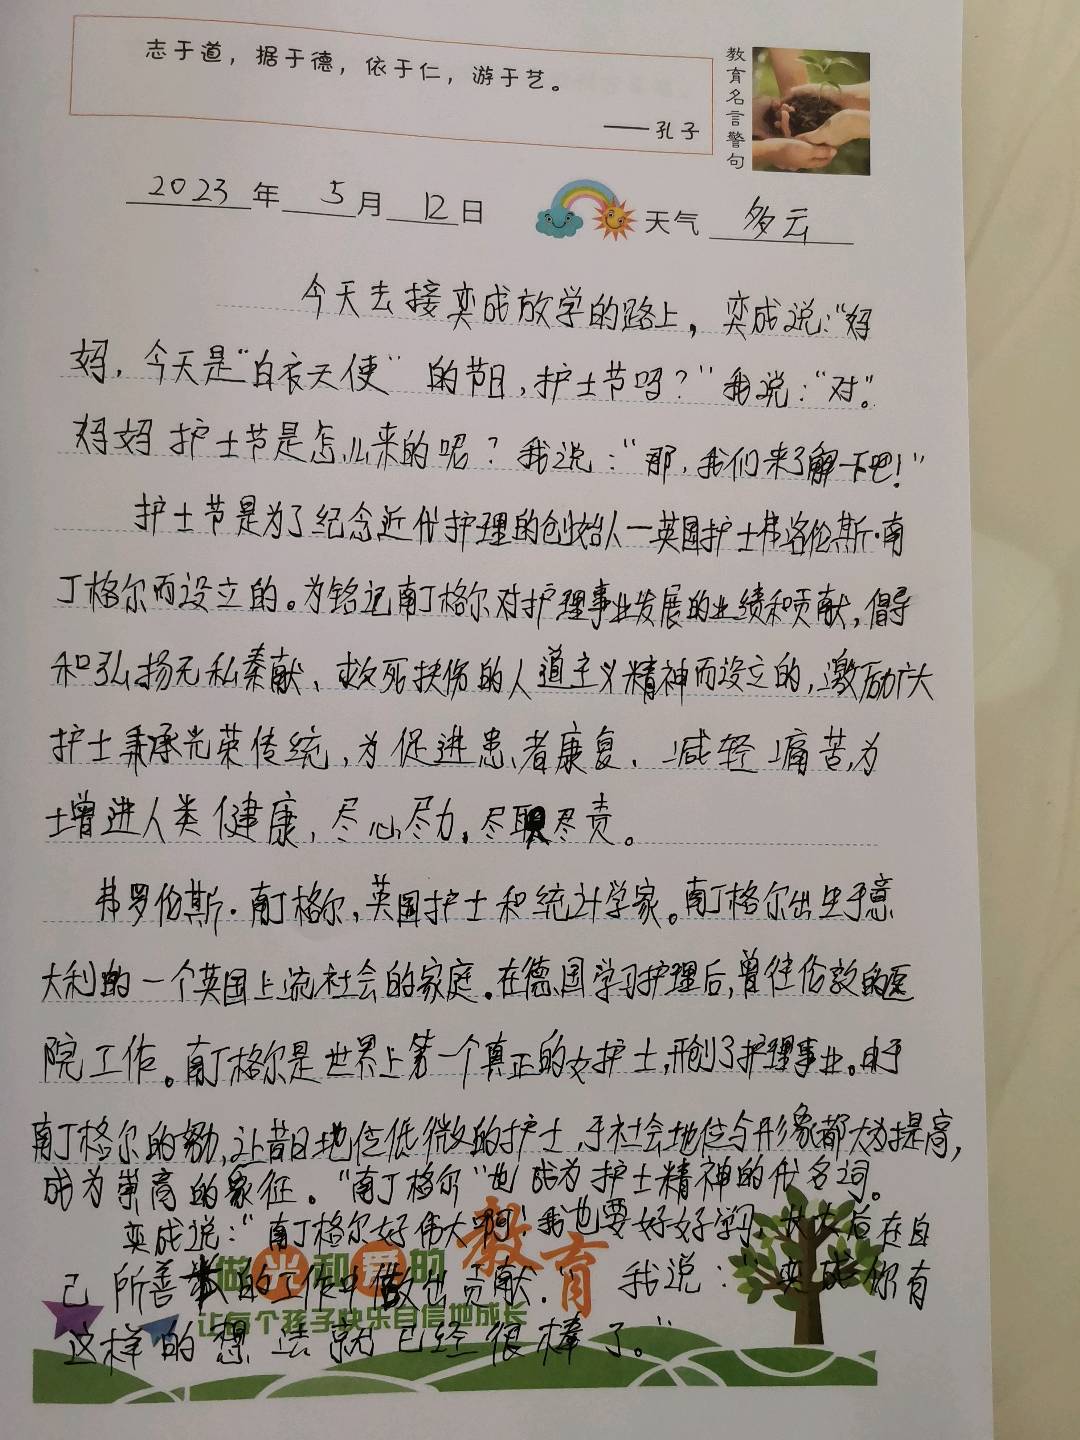 志于道，据于德，依于仁，游于艺。
——孔子
教育名言警句
2023年 5月 12日 天气 多云
今天去接奕成放学的路上，奕成说：“妈
妈，今天是“白衣天使”的节日，护士节吗？”我说：“对”。
妈妈护士节是怎么来的呢？我说：“那，我们来了解一下吧！”
护士节是为了纪念近代护理的创始人一英国护士弗洛伦斯·南
丁格尔而设立的。为铭记南丁格尔对护理事业发展的业绩和贡献，倡导
和弘扬无私奉献、救死扶伤的人道主义精神而设立的，激励广大
护士秉承光荣传统，为促进患者康复、减轻痛苦，为
增进人类健康，尽心尽力，尽职尽责。
弗罗伦斯·南丁格尔，英国护士和统计学家。南丁格尔出生于意
大利的一个英国上流社会的家庭。在德国学习护理后，曾往伦敦的医
院工作。南丁格尔是世界上第一个真正的女护士，开创了护理事业。由于
南丁格尔的努力，让昔日地位低微的护士，于社会地位与形象都大为提高，
成为崇高的象征。“南丁格尔”也成为护士精神的代名词。
奕成说：“南丁格尔好伟大啊！我也要好好学习，长大后在自
己所善的工作中做出贡献．”我说：“奕成你有
这样的想法就已经很棒了。”
做出和爱的教育
让每个孩子快乐自信地成长